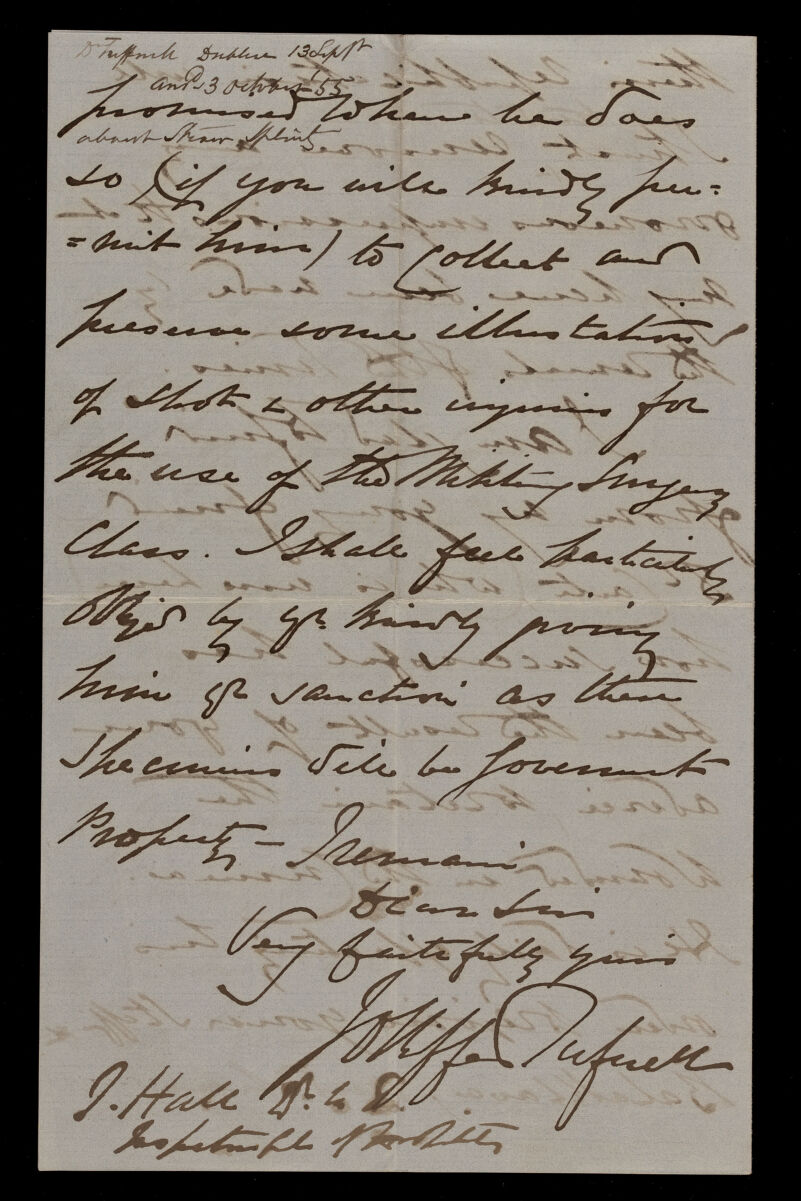 Dr Tufnell Dublin 13 Sept
ansd 3 October 55
about straw splints
promised when he does
so (if you will kindly per=
=mit him) to collect and
preserve some illustrations
of shot & other injuries for
the use of the Military Surgery
Class. I shall feel particularly
obliged by yr kindly giving
him yr sanction as these
specimens will be Government
Property - I remain
Dear Sir
Very faithfully yours
Jolliffe Tufnell
J. Hall
Inspector of Hospitals